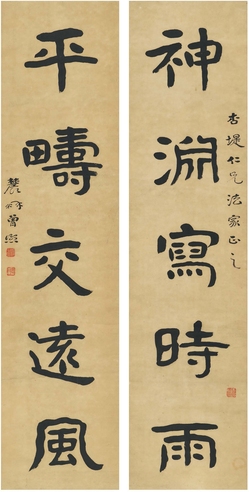 神淵寫時雨
杏堤仁兄法家正之
平疇交遠風
農髯曾熙